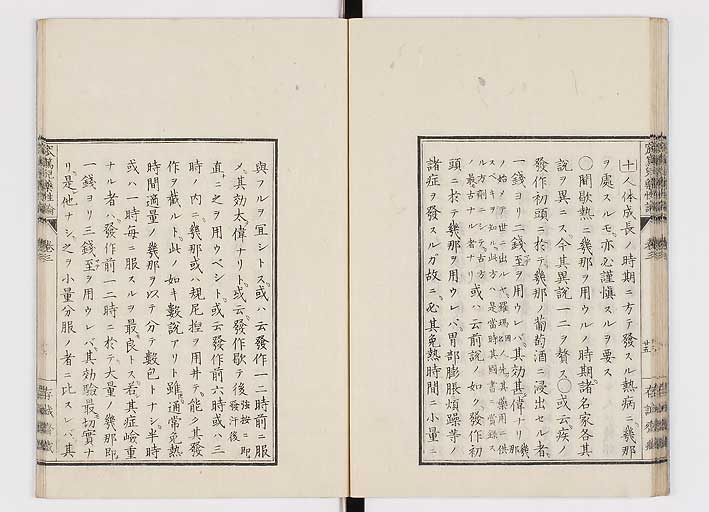 十人体成長ノ時期ニ方テ發スル熱病ニ幾那
ヲ處スルモ亦必謹愼スルヲ要ス
〇間歇熱ニ幾那ヲ用ウルノ時期諸名家各其
說ヲ異ニス今其異說一二ヲ贅ス〇或云疾ノ
發作初頭ニ於テ幾那ノ葡萄酒ニ浸出セル者
一錢ヨリ二錢至ヲ用ウレバ其効甚偉ナリト幾那
ノ始メテ世ニ出ルヤ羅瑪國人先其藥用ニ供
スベキヲ知ル此方ハ是當時其國書ニ嘗錄ス
ル方劑ニシテ古方
ノ最古ナル者ナリ或ハ云前說ノ如ク發作初
頭ニ於テ幾那ヲ用ウレバ胃部膨脹煩躁等ノ
諸症ヲ發スルガ故ニ必其免熱時間ニ小量ニ
與フルヲ宜シトス或ハ云發作一二時前ニ服
メ其効太偉ナリト或云發作歇テ後強按ニ即
發汗後
直ニ之ヲ用ウベシト或云發作前六時或ハ三
時ノ內ニ幾那或ハ規尼捏ヲ用井テ能ク其發
作ヲ截ルト此ノ如キ數說アリト雖通常免熱
時間適量ノ幾那ヲ以テ分テ數包トナシ半時
或ハ一時每ニ服スルヲ最良トス若其症嶮重
ナル者ハ發作前一二時ニ於テ大量ノ幾那即
一錢ヨリ三錢至ヲ用ウレバ其効驗最切實ナ
リ是他ナシ之ヲ小量分服ノ者ニ比スレバ其
窊篤兒藥性論
卷三